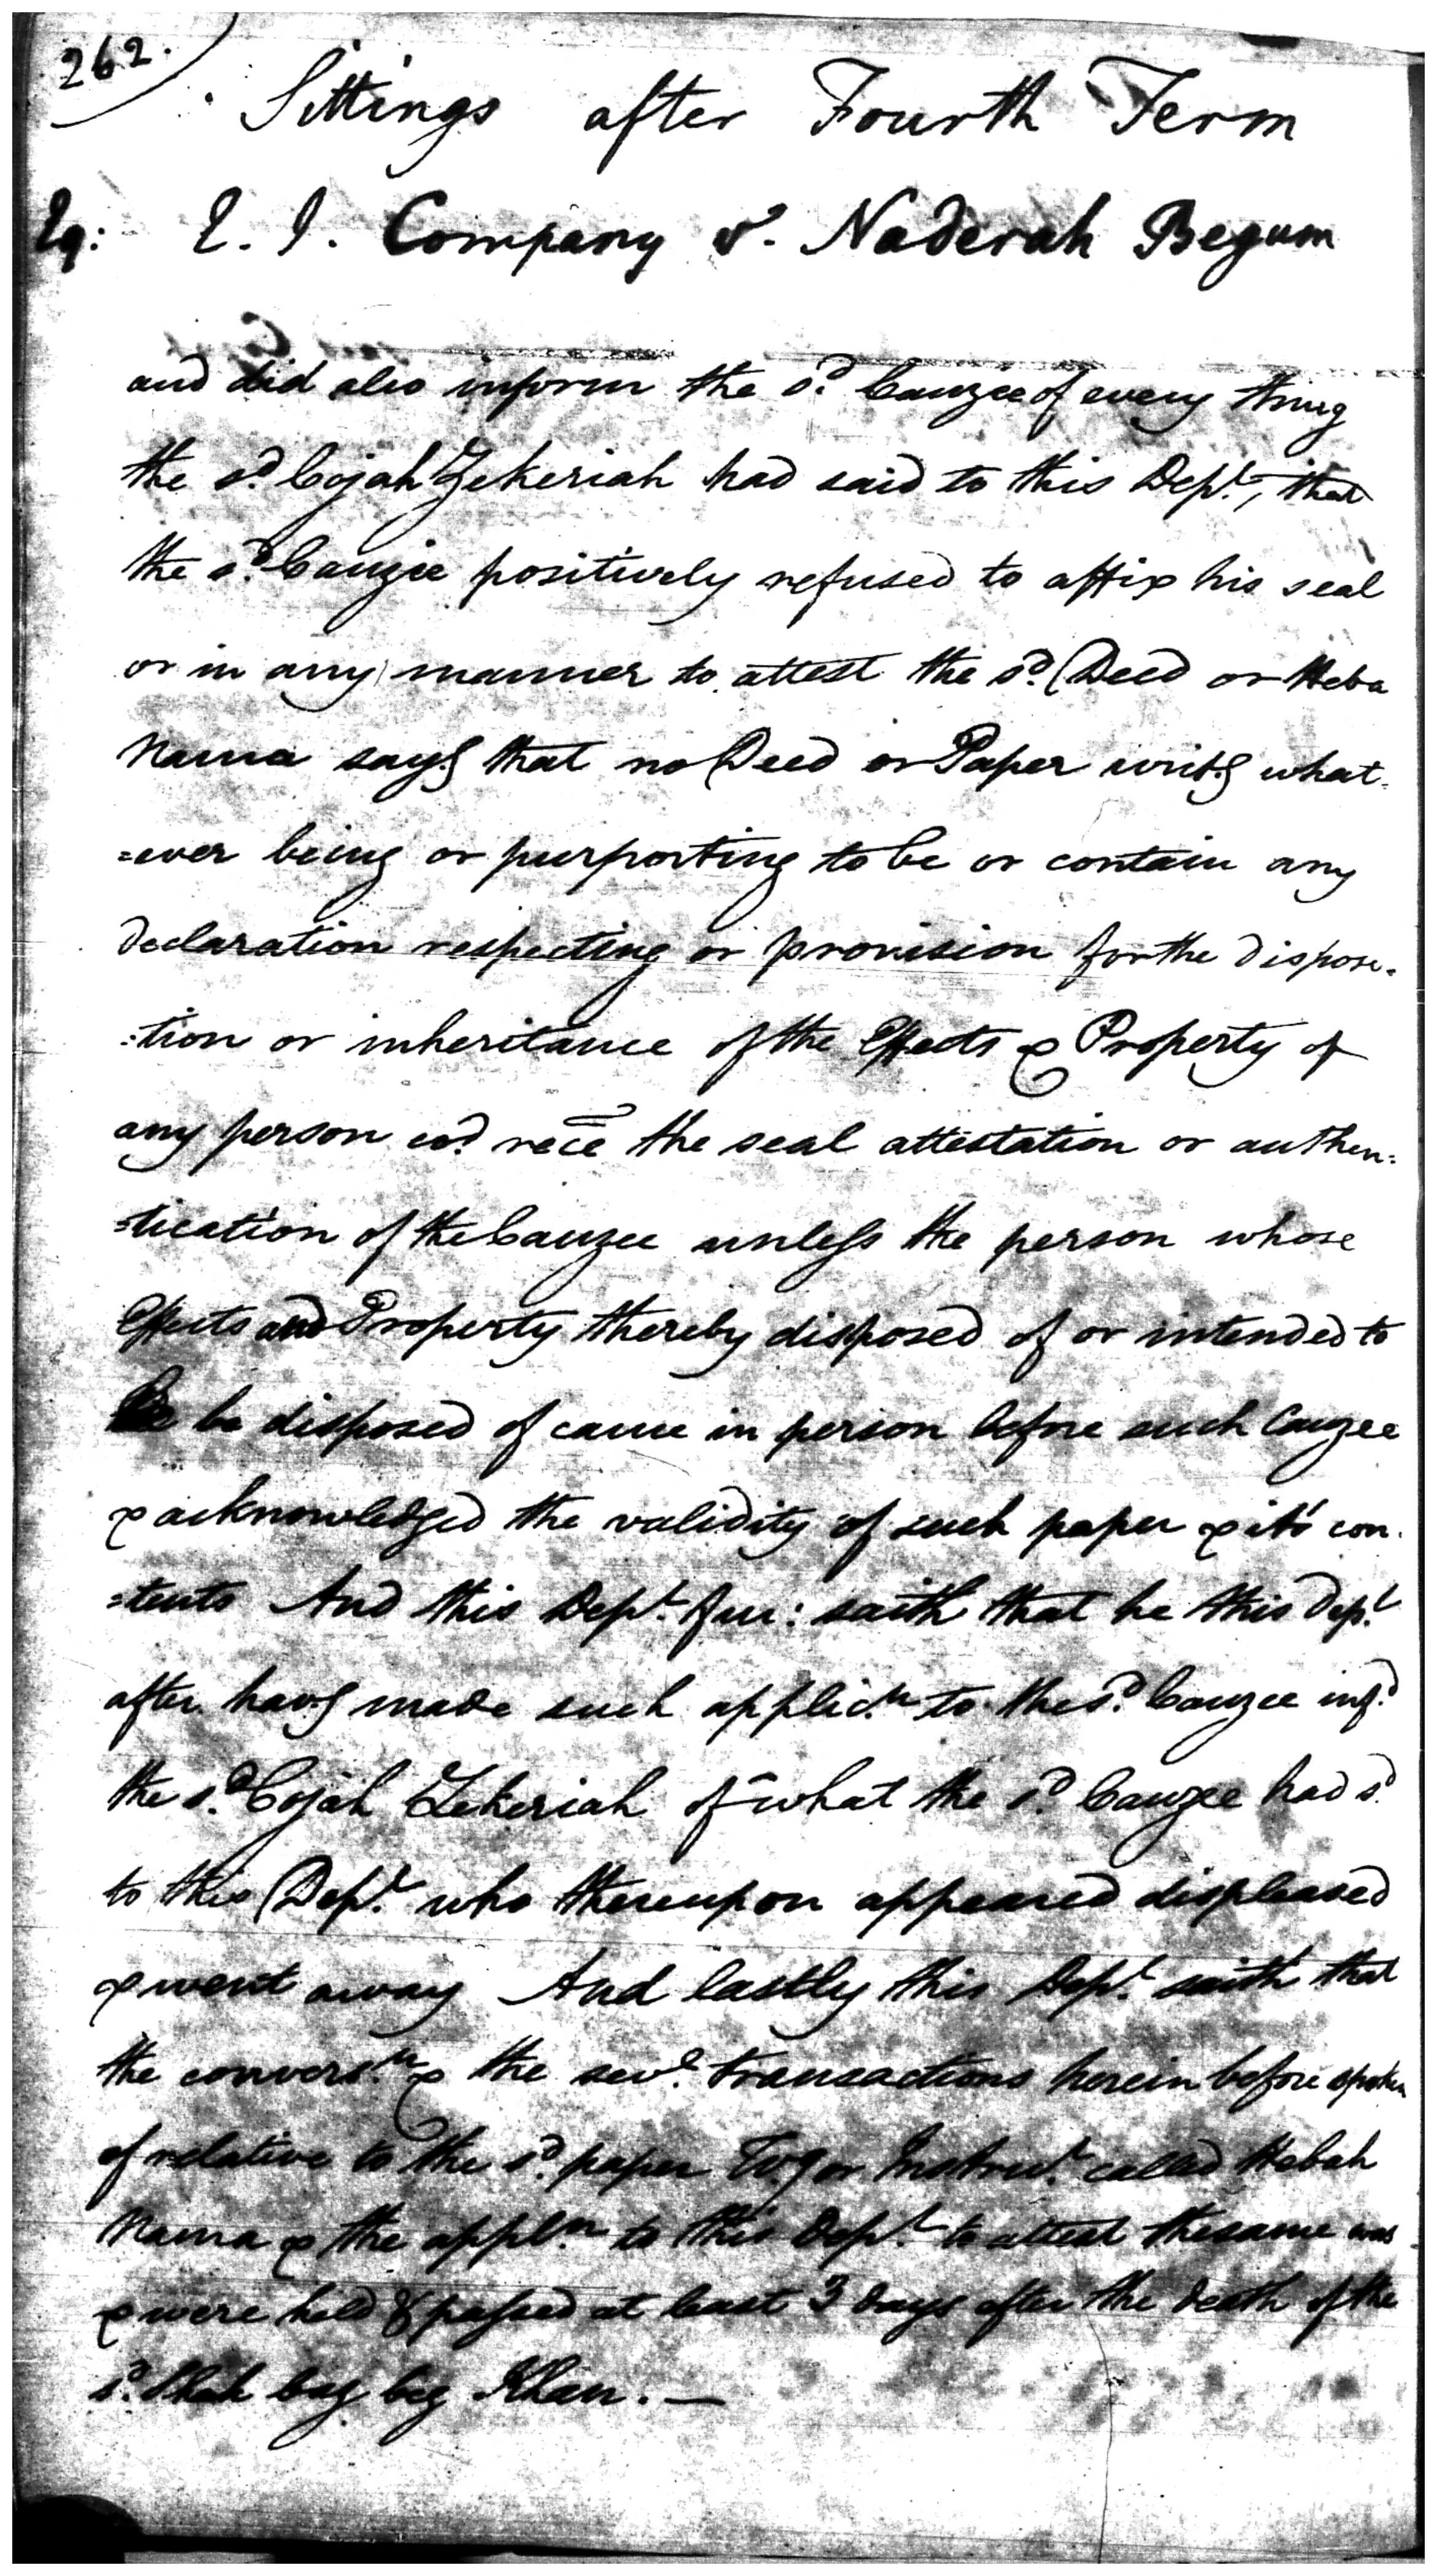 262.
Sittings after Fourth Term
Eq: E. I. Company v. Naderah Begum
and did also inform the sd. Cauzee of every thing
the sd. Cojah Zekeriah had said to this Dept., that
the sd. Cauzee positively refused to affix his seal
or in any manner to attest the sd. Deed or Heba
Nama sayg that no Deed or Paper writg what-
=ever being or purporting to be or contain any
declaration respecting or provision for the dispose-
:tion or inheritance of the Effects & Property of
any person cod. rece the seal attestation or authen:
=tication of the Cauzee unless the person whose
Effects and Property thereby disposed of or intended to
be disposed of came in person before such Cauzee
& acknowledged the validity of such paper & its con-
=tents And this Dept. fur: saith that he this Dept.
after havg made such applicn. to the sd. Cauzee infd.
the sd. Cojah Zekeriah of what the sd. Cauzee had sd.
to this Dept. who thereupon appeared displeased
& went away And lastly this Dept. saith that
the conversn. & the sevl. transactions herein before spoken
of relative to the sd. paper Wg or Instrut. called Hebah
Nama & the appln. to this Dept. to attest the same was
& were held & passed at least 3 days after the death of the
sd. Shah bag beg Khan. —